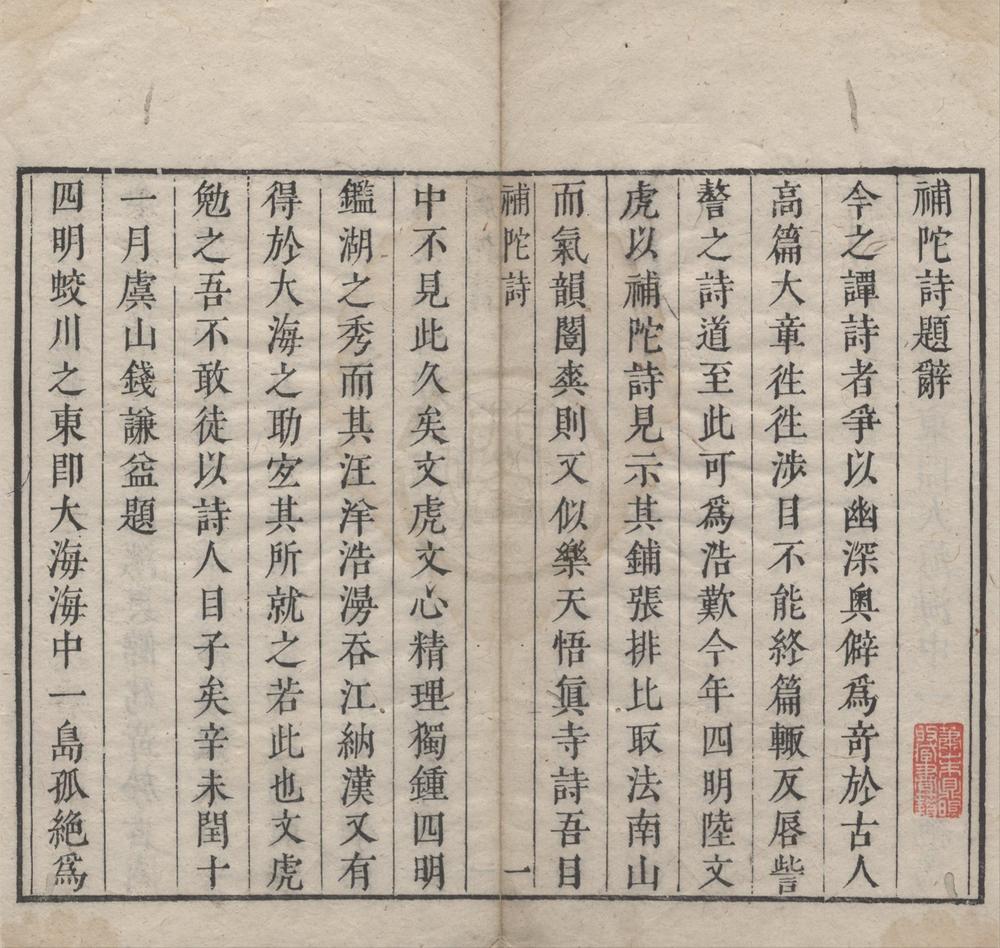 補陀詩題辭
今之譚詩者爭以幽深奧僻爲奇於古人
高篇大章徃徃涉目不能終篇輙反唇訾
謷之詩道至此可爲浩歎今年四明陸文
虎以補陀詩見示其鋪張排比取法南山
而氣韻闓爽則又似樂天悟眞寺詩吾目
補陀詩 一
中不見此久矣文虎文心精理獨鍾四明
鑑湖之秀而其汪洋浩漫吞江納漢又有
得於大海之助宐其所就之若此也文虎
勉之吾不敢徒以詩人目子矣辛未閏十
一月虞山錢謙益題
四明蛟川之東即大海海中一島孤絶爲